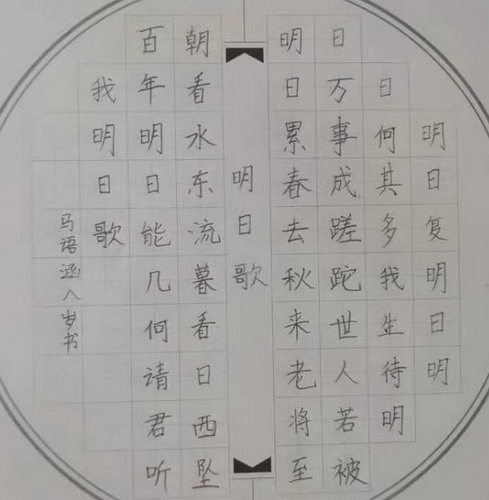 明日复明日明
日何其多我生待明
日万事成蹉跎世人若被
明日累春去秋来老将至
明日歌
朝看水东流暮看日西坠
百年明日能几何请君听
我明日歌
马语涵八岁书